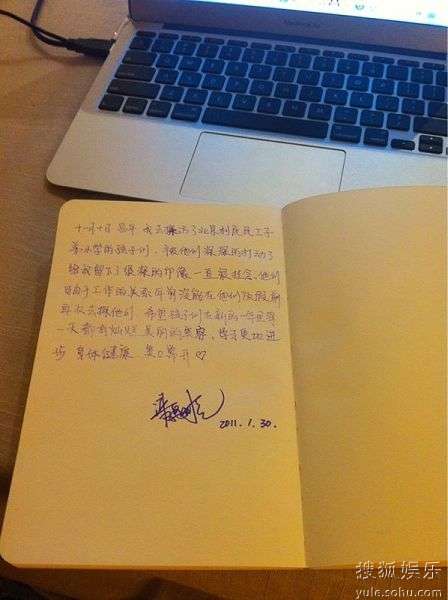 MacBook Air
十一月十日 去年 我去探访了北京利民民工子
弟小学的孩子们,被他们深深的打动了
给我留下了很深的印象 一直很挂念他们
但由于工作的关系年前没能在他们放假前
再次去探他们 希望孩子们在新的一年里每
一天都有灿烂美丽的笑容,学习更快进
步 身体健康 关心尊开♡
2011.1.30.
搜狐娱乐
yule.sohu.com